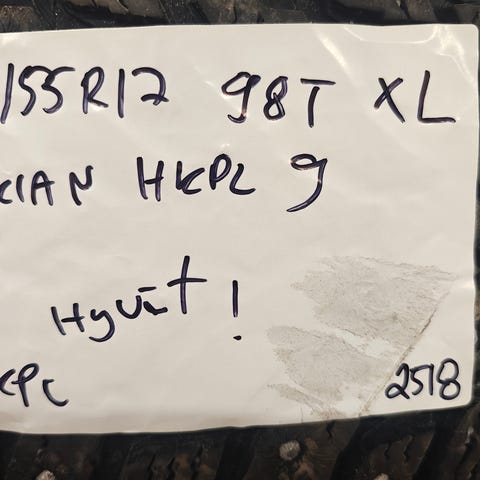 /55R17 98T XL
KIAN HKPL 9
Hyvät!
KPL 2518